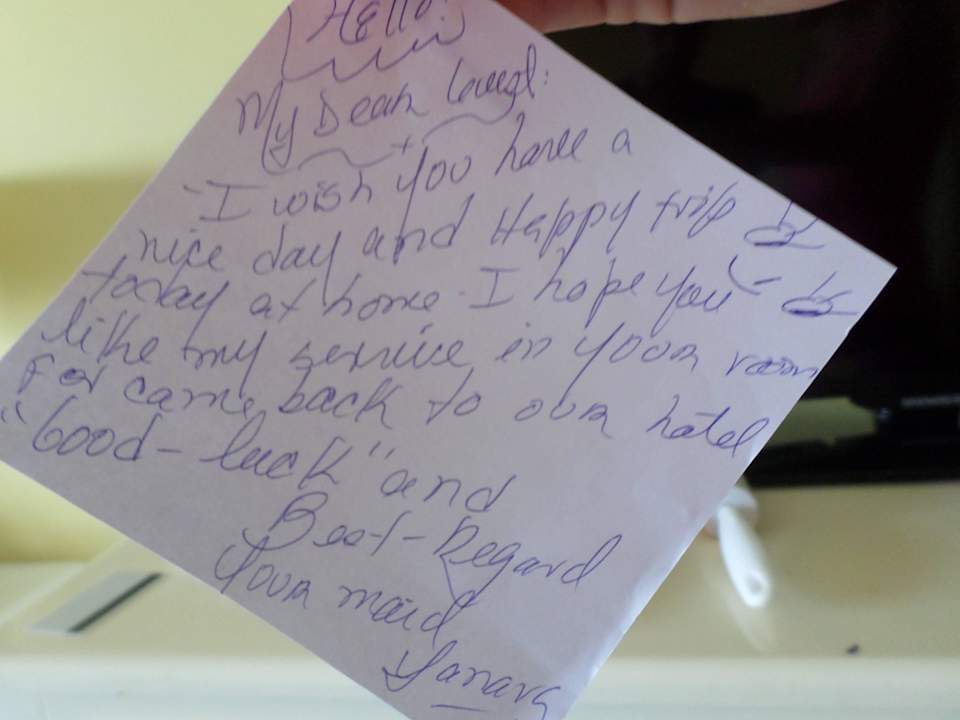 Hello!
My Dear
I wish you have a
nice day and Happy trip
today at home. I hope you
like my service in your room
For came back to our hotel
"Good-luck" and
Best-Regard
Your maid
Yanara